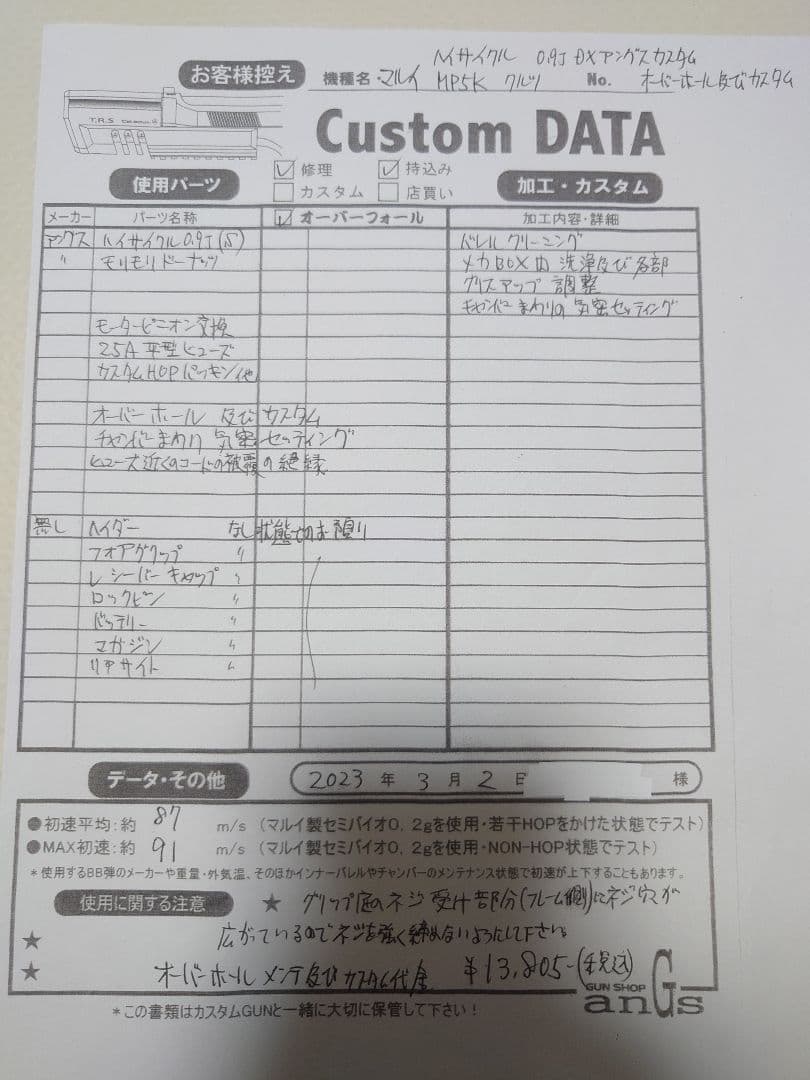 ハイサイクル 0.9J DXアングスカスタム
お客様控え 機種名・マルイ MP5K クルツ No. オーバーホール及びカスタム
T.R.S
Custom DATA
使用パーツ
☑修理 ☑持込み
□カスタム □店買い
加工・カスタム
メーカー パーツ名称 ☑オーバーフォール 加工内容・詳細
アングス ハイサイクル0.9J(S) バレルクリーニング
〃 モリモリドーナッツ メカBOX内 洗浄及び各部
グリスアップ 調整
チャンバーまわりの気密セッティング
モーターピニオン交換
25A 平型ヒューズ
カスタムHOPパッキン他
オーバーホール 及びカスタム
チャンバーまわり 気密セッティング
ヒューズ近くのコードの被覆の絶縁
無し ハイダー なし状態でのお預り
フォアグリップ 〃
レシーバーキャップ 〃
ロックピン 〃
バッテリー 〃
マガジン 〃
リアサイト 〃
データ・その他
2023年 3月 2日 様
●初速平均:約 87 m/s (マルイ製セミバイオ0.2gを使用・若干HOPをかけた状態でテスト)
●MAX初速:約 91 m/s (マルイ製セミバイオ0.2gを使用・NON-HOP状態でテスト)
*使用するBB弾のメーカーや重量・外気温、そのほかインナーバレルやチャンバーのメンテナンス状態で初速が上下することもあります。
使用に関する注意 ★ グリップ底のネジ受け部分(フレーム側)にネジ穴が
★ 広がっているのでネジを強く締めないようにして下さい。
★ オーバーホール メンテ及びカスタム代金 ¥13,805-(税込)
GUN SHOP
anGs
*この書類はカスタムGUNと一緒に大切に保管して下さい!